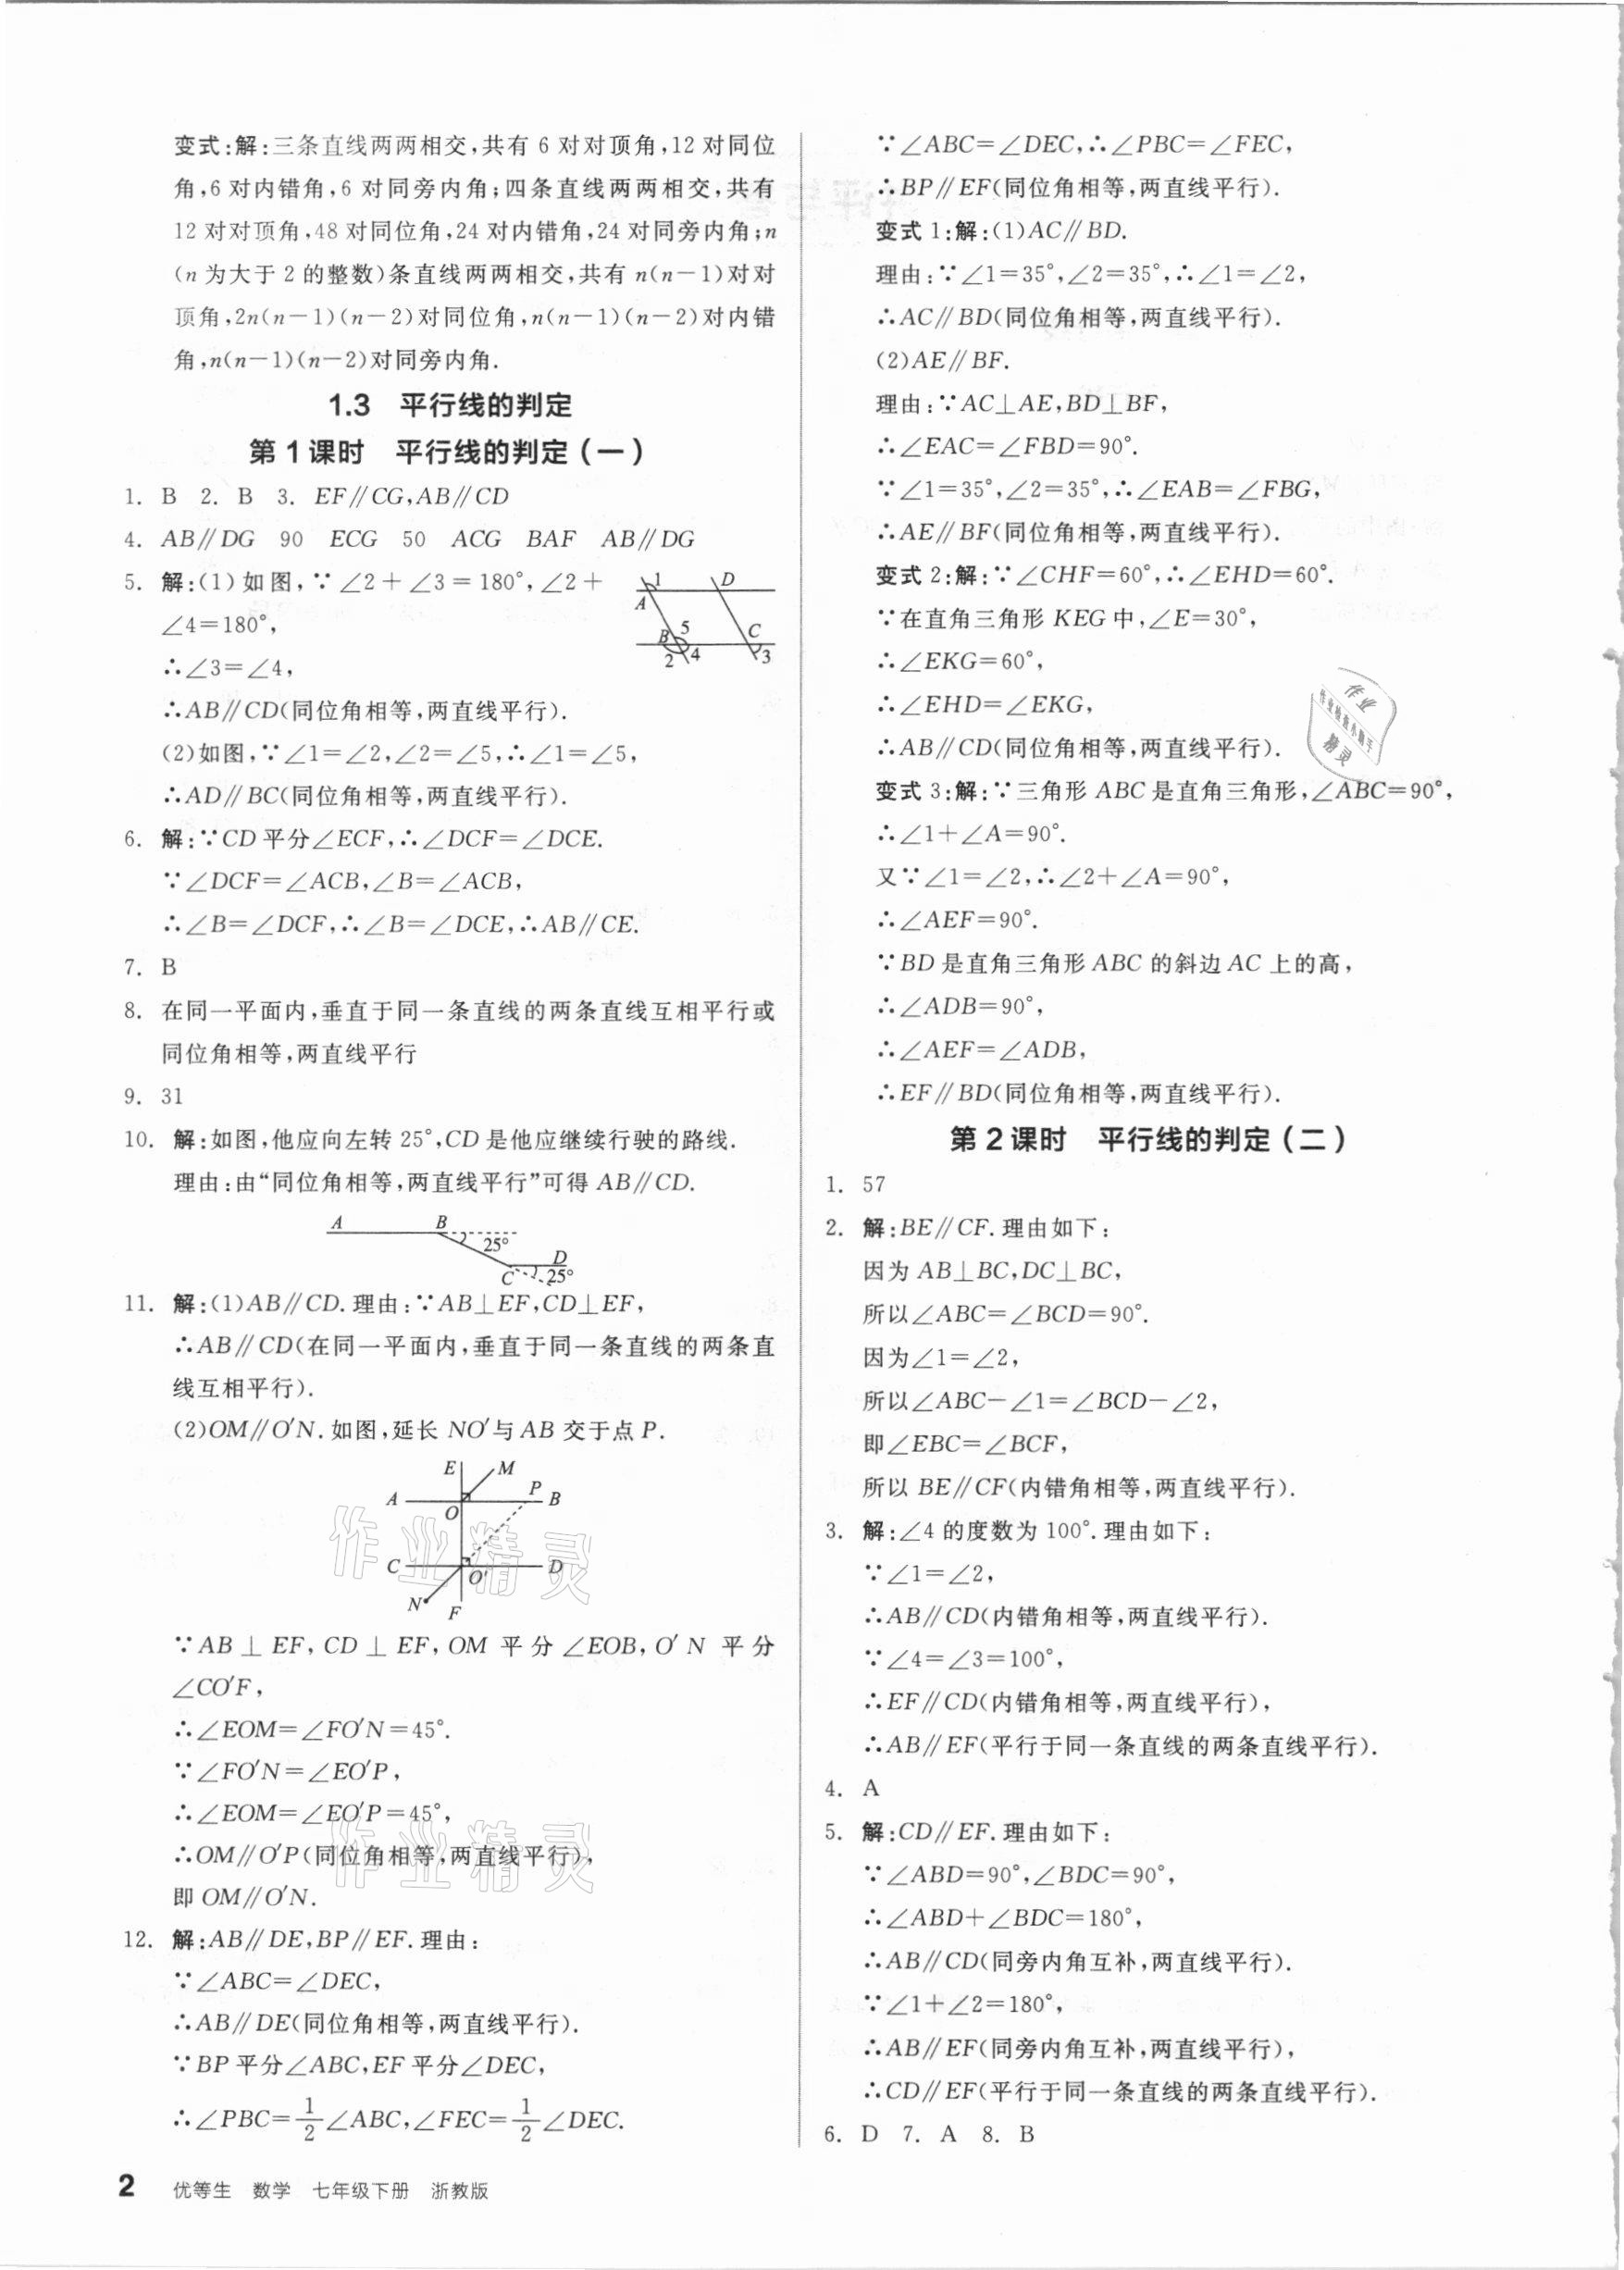 变式:解:三条直线两两相交,共有 6 对对顶角,12 对同位
角,6 对内错角,6 对同旁内角;四条直线两两相交,共有
12 对对顶角,48 对同位角,24 对内错角,24 对同旁内角;n
(n 为大于 2 的整数)条直线两两相交,共有 n(n-1)对对
顶角,2n(n-1)(n-2)对同位角,n(n-1)(n-2)对内错
角,n(n-1)(n-2)对同旁内角.
1.3 平行线的判定
第 1 课时 平行线的判定(一)
1. B 2. B 3. EF∥CG,AB∥CD
4. AB∥DG 90 ECG 50 ACG BAF AB∥DG
5. 解:(1)如图,∵∠2+∠3=180°,∠2+
∠4=180°,
∴∠3=∠4,
∴AB∥CD(同位角相等,两直线平行).
(2)如图,∵∠1=∠2,∠2=∠5,∴∠1=∠5,
∴AD∥BC(同位角相等,两直线平行).
1 D
A
B 5 C
2 4 3
6. 解:∵CD 平分∠ECF,∴∠DCF=∠DCE.
∵∠DCF=∠ACB,∠B=∠ACB,
∴∠B=∠DCF,∴∠B=∠DCE,∴AB∥CE.
7. B
8. 在同一平面内,垂直于同一条直线的两条直线互相平行或
同位角相等,两直线平行
9. 31
10. 解:如图,他应向左转 25°,CD 是他应继续行驶的路线.
理由:由“同位角相等,两直线平行”可得 AB∥CD.
A B
25° D
C 25°
11. 解:(1)AB∥CD.理由:∵AB⊥EF,CD⊥EF,
∴AB∥CD(在同一平面内,垂直于同一条直线的两条直
线互相平行).
(2)OM∥O′N.如图,延长 NO′与 AB 交于点 P.
E M
A P B
O
C O′ D
N F
∵AB⊥EF,CD⊥EF,OM 平分∠EOB,O′N 平分
∠CO′F,
∴∠EOM=∠FO′N=45°.
∵∠FO′N=∠EO′P,
∴∠EOM=∠EO′P=45°,
∴OM∥O′P(同位角相等,两直线平行),
即 OM∥O′N.
12. 解:AB∥DE,BP∥EF.理由:
∵∠ABC=∠DEC,
∴AB∥DE(同位角相等,两直线平行).
∵BP 平分∠ABC,EF 平分∠DEC,
∴∠PBC=1/2∠ABC,∠FEC=1/2∠DEC.
∵∠ABC=∠DEC,∴∠PBC=∠FEC,
∴BP∥EF(同位角相等,两直线平行).
变式 1:解:(1)AC∥BD.
理由:∵∠1=35°,∠2=35°,∴∠1=∠2,
∴AC∥BD(同位角相等,两直线平行).
(2)AE∥BF.
理由:∵AC⊥AE,BD⊥BF,
∴∠EAC=∠FBD=90°.
∵∠1=35°,∠2=35°,∴∠EAB=∠FBG,
∴AE∥BF(同位角相等,两直线平行).
变式 2:解:∵∠CHF=60°,∴∠EHD=60°.
∵在直角三角形 KEG 中,∠E=30°,
∴∠EKG=60°,
∴∠EHD=∠EKG,
∴AB∥CD(同位角相等,两直线平行).
变式 3:解:∵三角形 ABC 是直角三角形,∠ABC=90°,
∴∠1+∠A=90°.
又∵∠1=∠2,∴∠2+∠A=90°,
∴∠AEF=90°.
∵BD 是直角三角形 ABC 的斜边 AC 上的高,
∴∠ADB=90°,
∴∠AEF=∠ADB,
∴EF∥BD(同位角相等,两直线平行).
第 2 课时 平行线的判定(二)
1. 57
2. 解:BE∥CF.理由如下:
因为 AB⊥BC,DC⊥BC,
所以∠ABC=∠BCD=90°.
因为∠1=∠2,
所以∠ABC-∠1=∠BCD-∠2,
即∠EBC=∠BCF,
所以 BE∥CF(内错角相等,两直线平行).
3. 解:∠4 的度数为 100°.理由如下:
∵∠1=∠2,
∴AB∥CD(内错角相等,两直线平行).
∵∠4=∠3=100°,
∴EF∥CD(内错角相等,两直线平行),
∴AB∥EF(平行于同一条直线的两条直线平行).
4. A
5. 解:CD∥EF.理由如下:
∵∠ABD=90°,∠BDC=90°,
∴∠ABD+∠BDC=180°,
∴AB∥CD(同旁内角互补,两直线平行).
∵∠1+∠2=180°,
∴AB∥EF(同旁内角互补,两直线平行),
∴CD∥EF(平行于同一条直线的两条直线平行).
6. D 7. A 8. B
作业
作业检查小助手
精灵
作业精灵
作业精灵
2 优等生 数学 七年级下册 浙教版